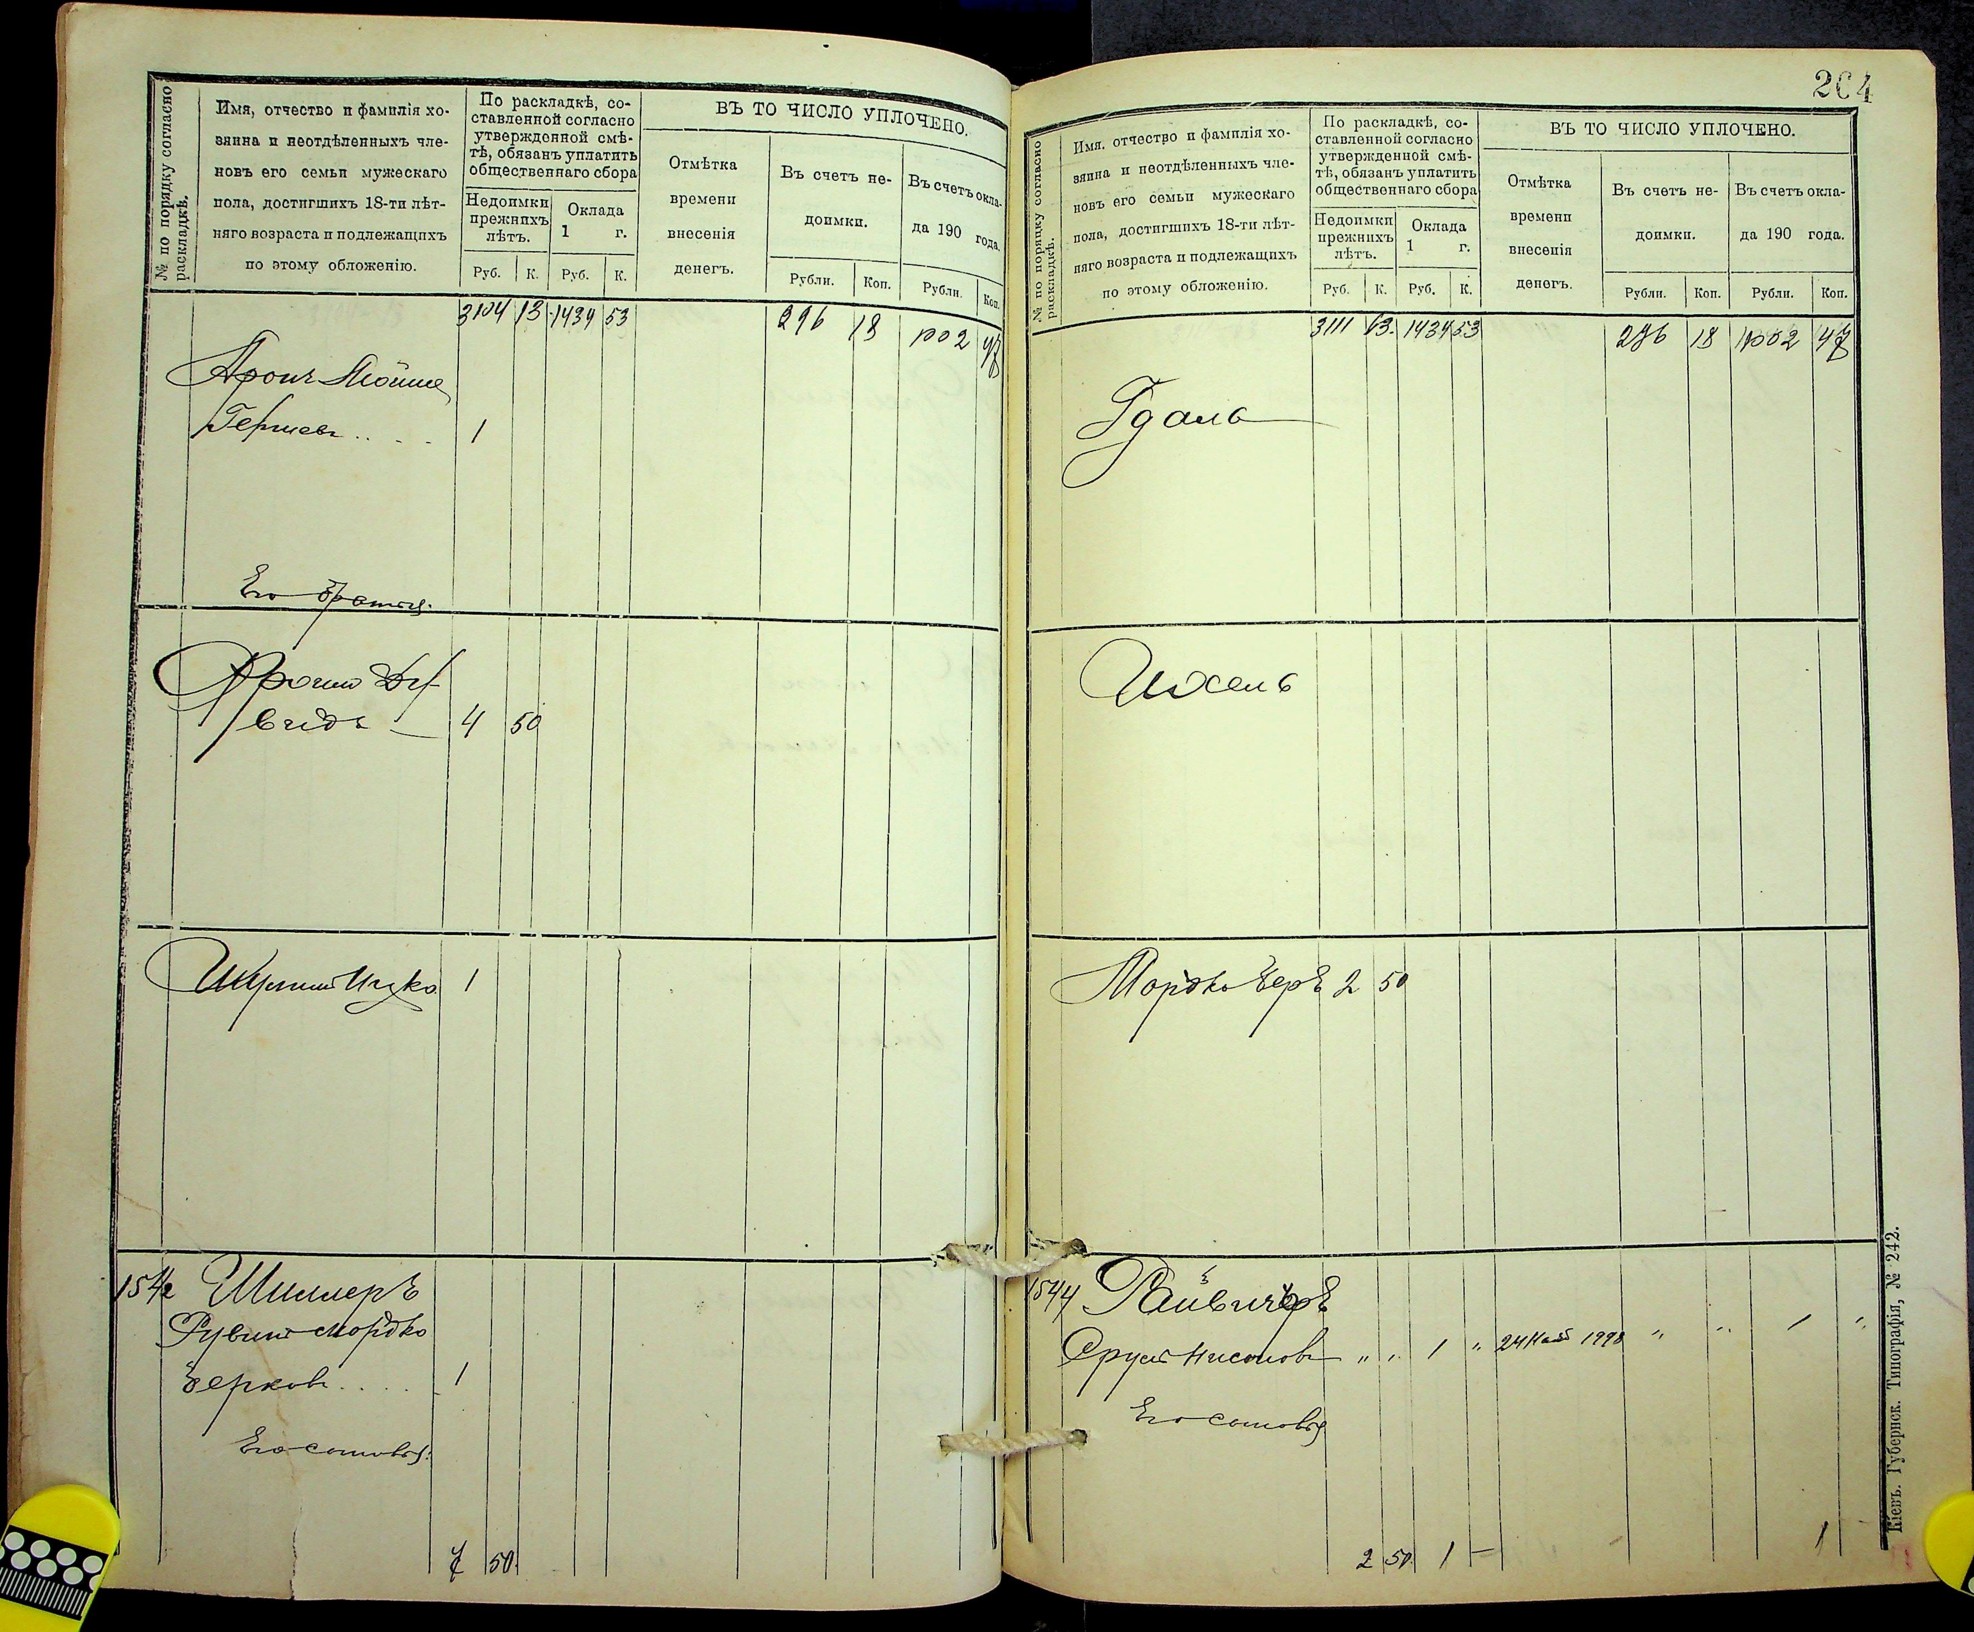 № по порядку согласно
раскладкѣ.
Имя, отчество и фамилія хо-
зяина и неотдѣленныхъ чле-
новъ его семьи мужескаго
пола, достигшихъ 18-ти лѣт-
няго возраста и подлежащихъ
по этому обложенію.
По раскладкѣ, со-
ставленной согласно
утвержденной смѣ-
тѣ, обязанъ уплатить
общественнаго сбора
Недоимки
прежнихъ
лѣтъ.
Оклада
1 г.
Руб. К. Руб. К.
ВЪ ТО ЧИСЛО УПЛОЧЕНО.
Отмѣтка
времени
внесенія
денегъ.
Въ счетъ не-
доимки.
Въ счетъ окла-
да 190 года.
Рубли. Коп. Рубли. Коп.
3104 13 1434 53 296 18 1002 47
Аронъ Мойше
Гершевъ . . - . 1
Его братья.
Фроимъ Ду-
видъ — 4 50
Шулимъ Ицко 1
1542 Шиллеръ
Рувинъ Мордко
Берковъ . . . . 1
Его сыновья:
7 50.
204
№ по порядку согласно
раскладкѣ.
Имя, отчество и фамилія хо-
зяина и неотдѣленныхъ чле-
новъ его семьи мужескаго
пола, достигшихъ 18-ти лѣт-
няго возраста и подлежащихъ
по этому обложенію.
По раскладкѣ, со-
ставленной согласно
утвержденной смѣ-
тѣ, обязанъ уплатить
общественнаго сбора
Недоимки
прежнихъ
лѣтъ.
Оклада
1 г.
Руб. К. Руб. К.
ВЪ ТО ЧИСЛО УПЛОЧЕНО.
Отмѣтка
времени
внесенія
денегъ.
Въ счетъ не-
доимки.
Въ счетъ окла-
да 190 года.
Рубли. Коп. Рубли. Коп.
3111 63. 1434 53 296 18 1002 47
Гдаль
Иосель
Мордко Беръ 2 50
1544
Сруль Нисоновъ " " 1 " 24 1998 " " 1 "
Его сыновья
2 50 1 — 1
Кіевъ. Губернск. Типографія, № 242.